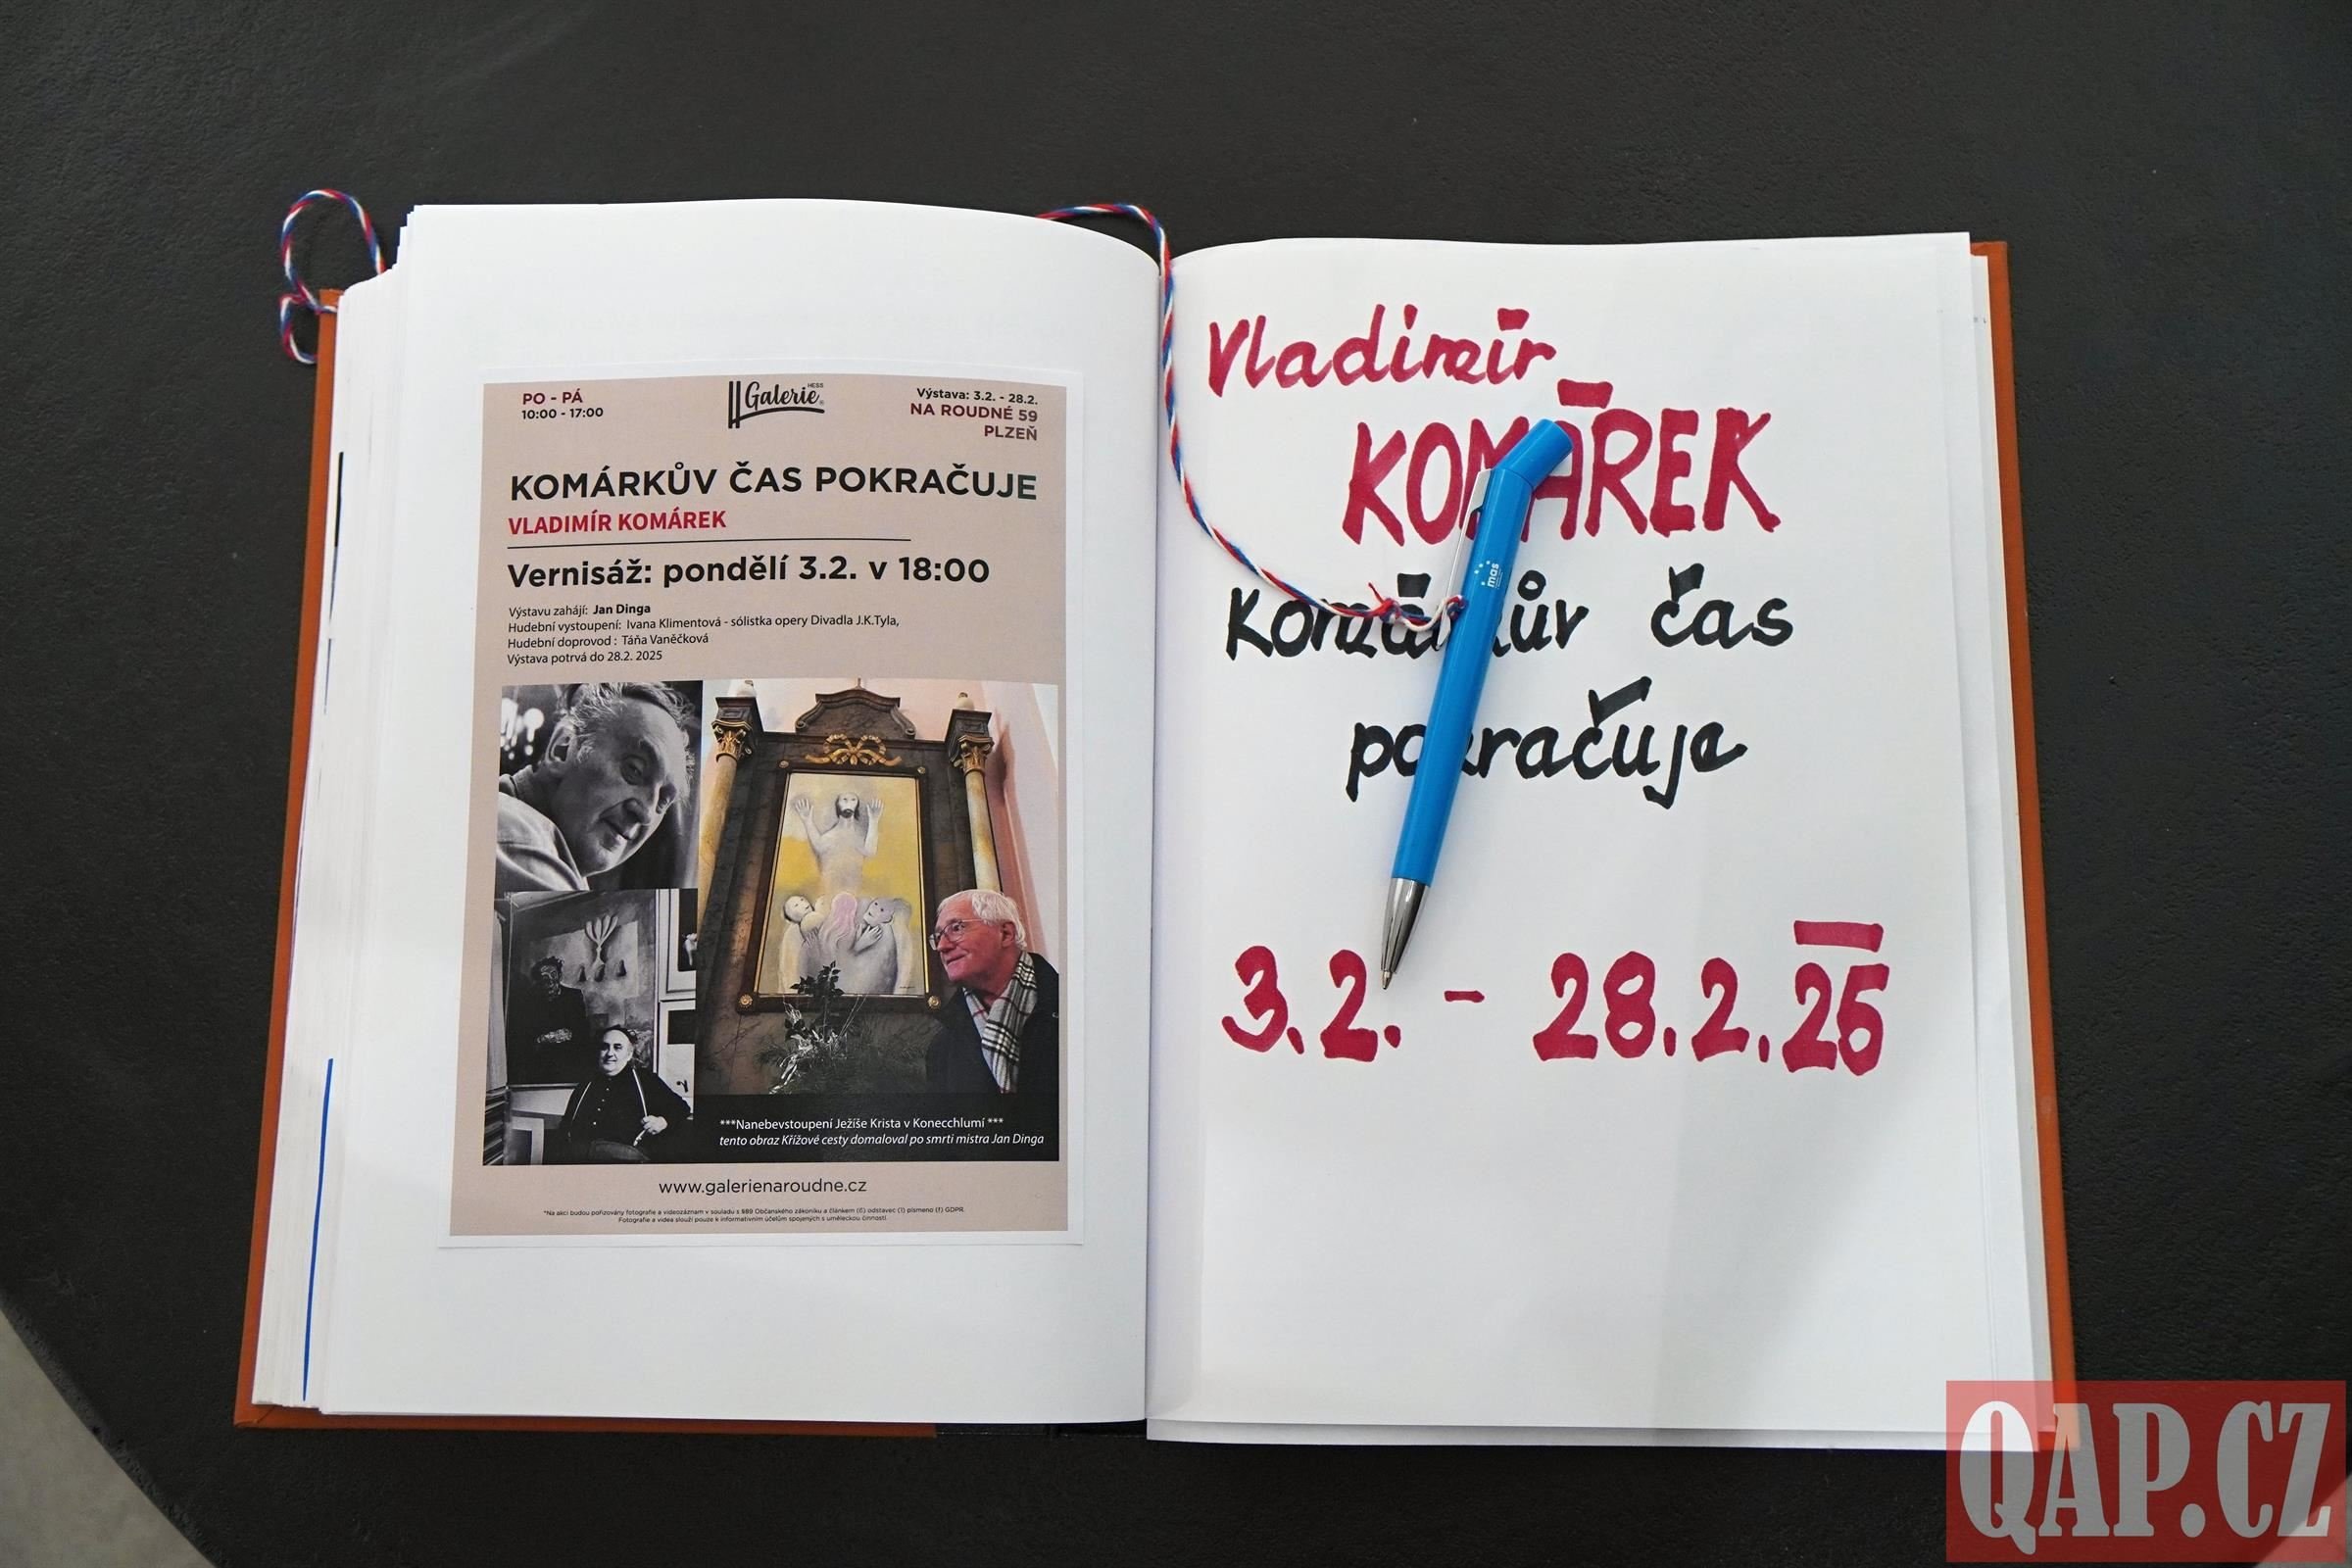 PO - PÁ
10:00 - 17:00
Galerie HESS
Výstava: 3.2. - 28.2.
NA ROUDNÉ 59
PLZEŇ
KOMÁRKŮV ČAS POKRAČUJE
VLADIMÍR KOMÁREK
Vernisáž: pondělí 3.2. v 18:00
Výstavu zahájí: Jan Dinga
Hudební vystoupení: Ivana Klimentová - sólistka opery Divadla J.K.Tyla,
Hudební doprovod : Táňa Vaněčková
Výstava potrvá do 28.2. 2025
***Nanebevstoupení Ježíše Krista v Konecchlumí ***
tento obraz Křížové cesty domaloval po smrti mistra Jan Dinga
www.galerienaroudne.cz
*Na akci budou pořizovány fotografie a videozáznam v souladu s §89 Občanského zákoníku a článkem (6) odstavec (1) písmeno (f) GDPR.
Fotografie a videa slouží pouze k informativním účelům spojených s uměleckou činností.
Vladimír
KOMÁREK
Komárkův čas
pokračuje
3.2. - 28.2.25
mas
QAP.CZ